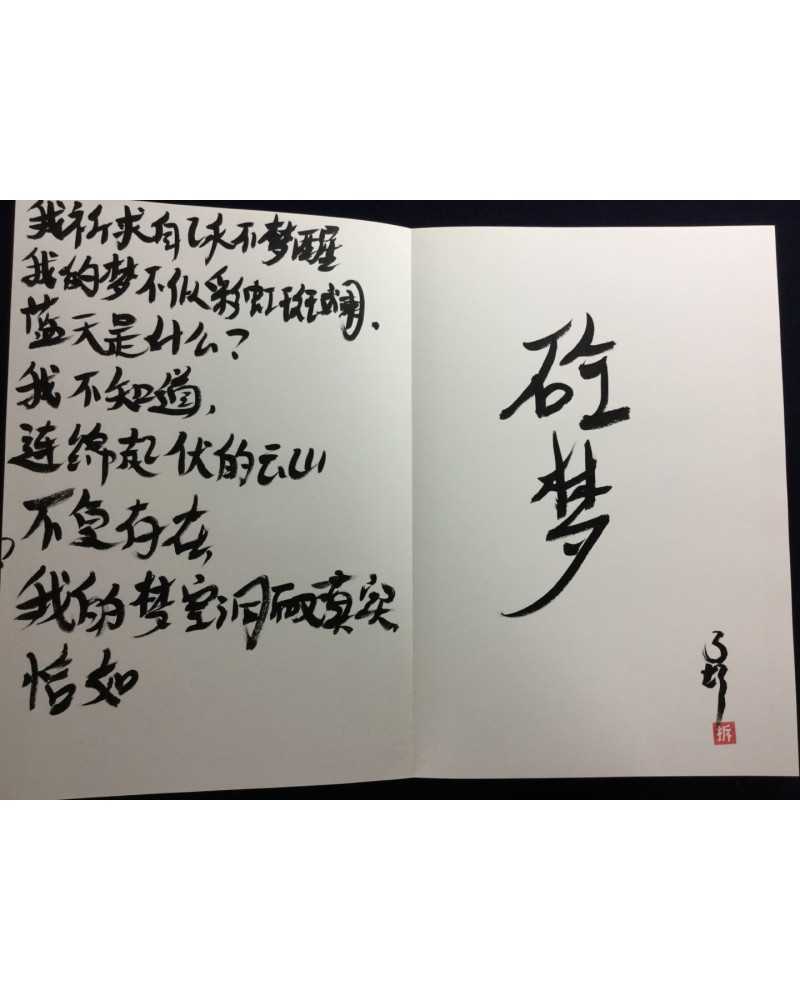 我祈求自己永不梦醒
我的梦不似彩虹斑斓,
蓝天是什么?
我不知道,
连绵起伏的云山
不复存在
我的梦空洞而真实
恰如
砼
梦
拆